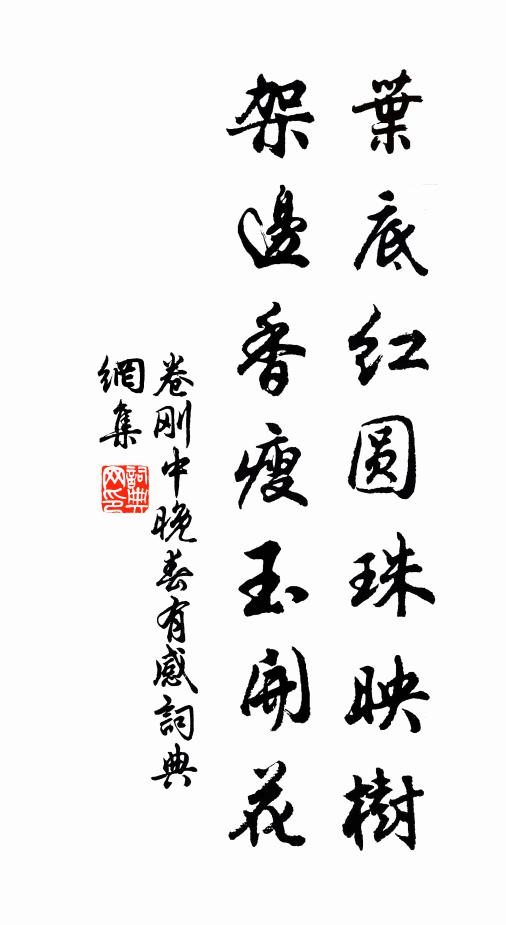 葉底紅圆珠映樹
架邊香瘦玉開花
卷剛中晚春有感詞典
網集
詞典
网印